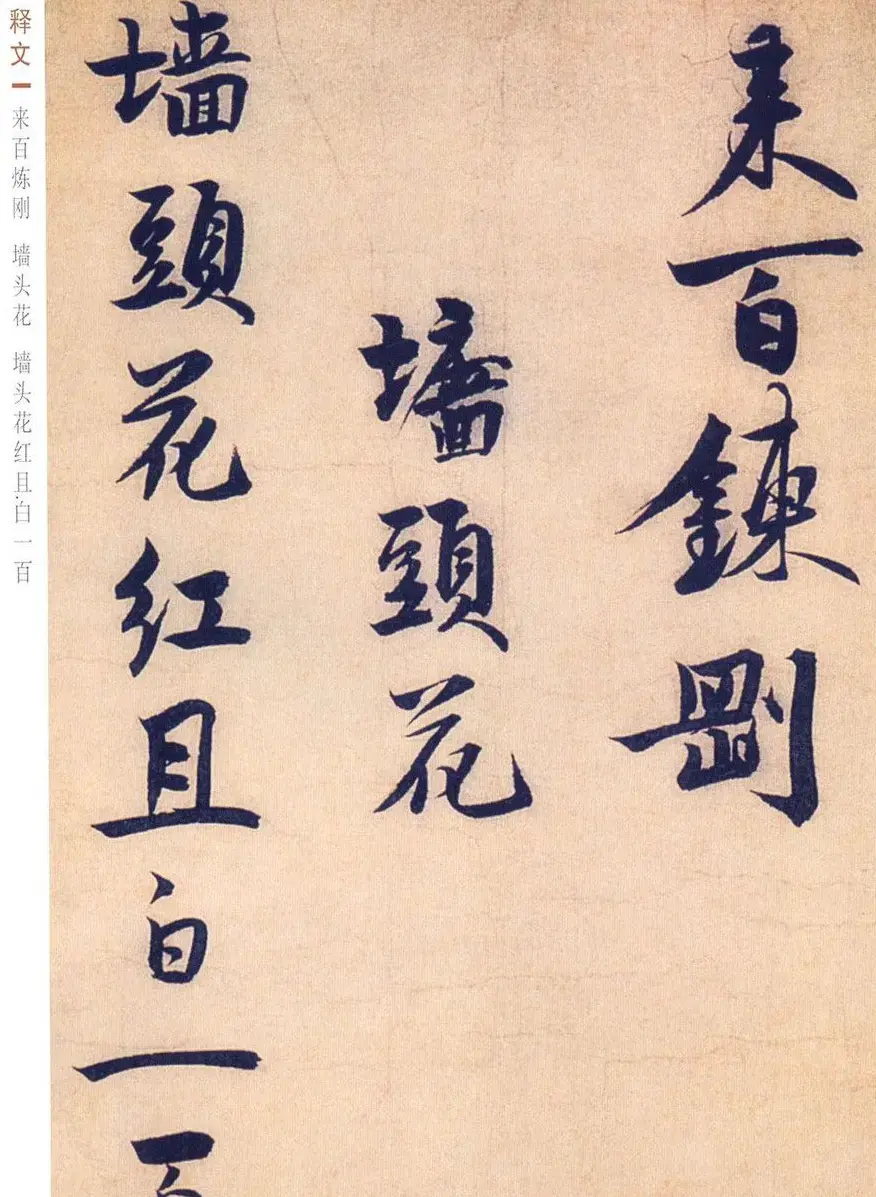 释文
来百炼刚 墙头花 墙头花红且白一百
来百鍊剛
墻頭花
墙頭花红且白一百